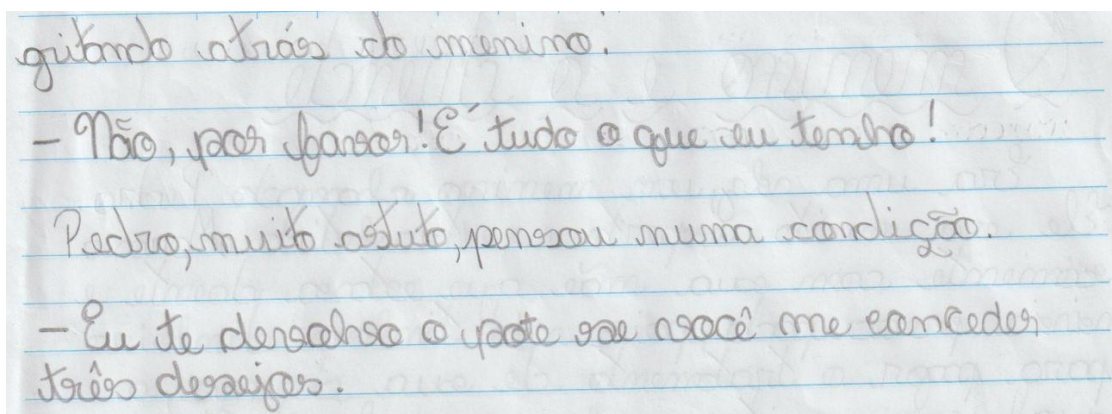 gritando atrás do menino.
- Não, por favor! É tudo o que eu tenho!
Pedro, muito astuto, pensou numa condição.
- Eu te devolvo o pote se você me conceder
três desejos.